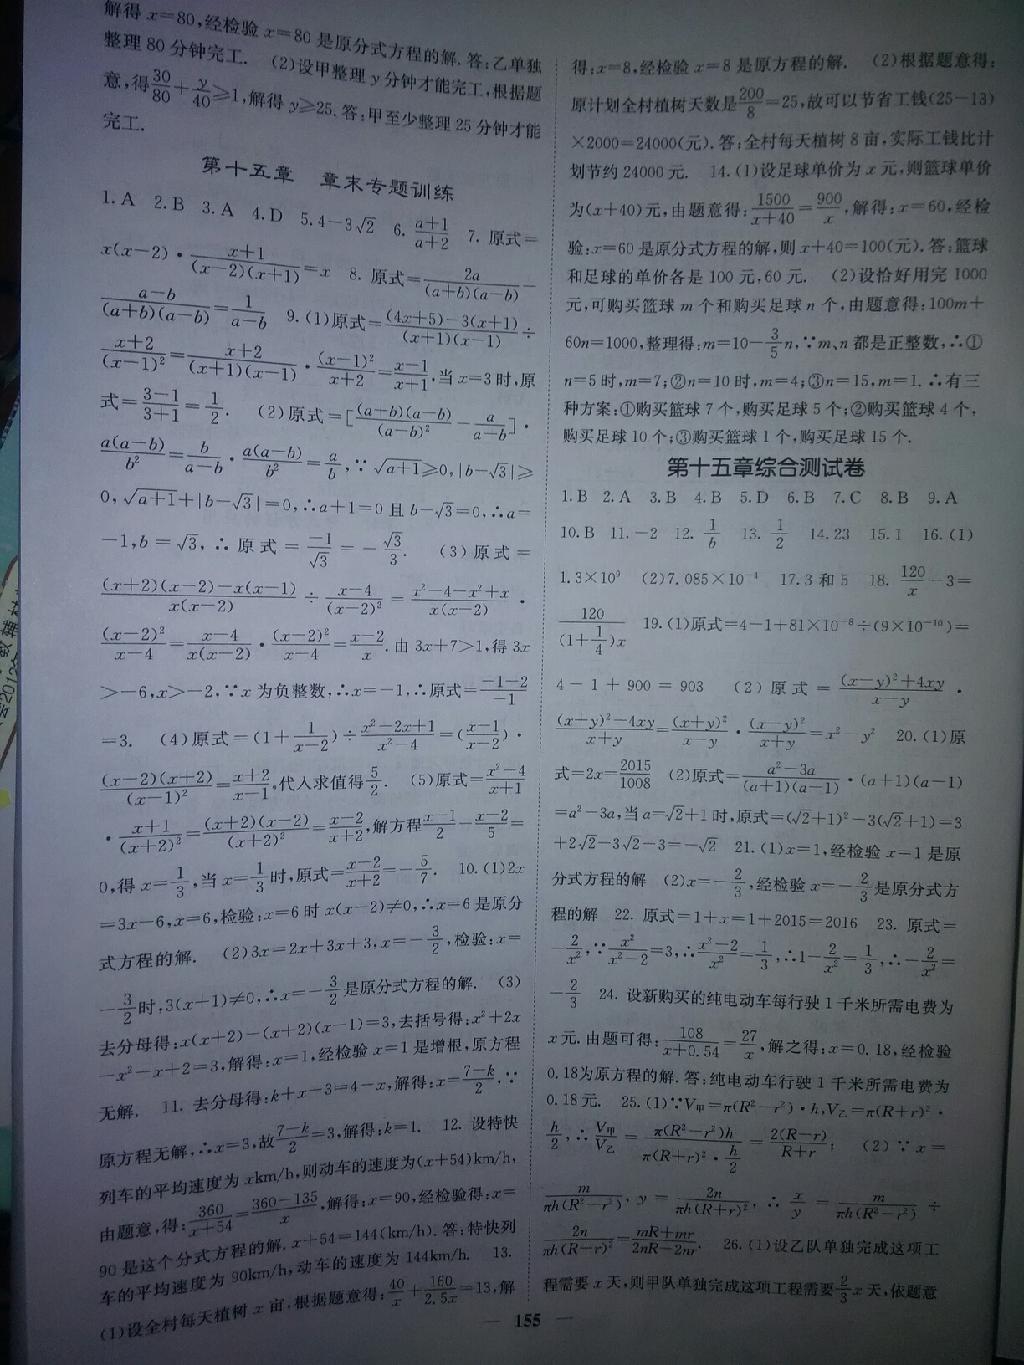 解得x=80,经检验x=80是原分式方程的解.答:乙单独
整理80分钟完工. (2)设甲整理y分钟才能完工,根据题
意,得30/80+y/40≥1,解得y≥25.答:甲至少整理25分钟才能
完工.
第十五章 章末专题训练
1.A 2.B 3.A 4.D 5.4-3√2 6.(a+1)/(a+2) 7.原式=
x(x-2)·(x+1)/((x-2)(x+1))=x 8.原式=2a/((a+b)(a-b))-
(a-b)/((a+b)(a-b))=1/(a-b) 9.(1)原式=((4x+5)-3(x+1))/((x+1)(x-1))÷
(x+2)/(x-1)²=(x+2)/((x+1)(x-1))·(x-1)²/(x+2)=(x-1)/(x+1),当x=3时,原
式=(3-1)/(3+1)=1/2. (2)原式=[(a-b)(a-b)/(a-b)²-a/(a-b)]·
a(a-b)/b²=b/(a-b)·a(a-b)/b²=a/b,∵√(a+1)≥0,|b-√3|≥
0,√(a+1)+|b-√3|=0,∴a+1=0且b-√3=0,∴a=
-1,b=√3,∴原式=-1/√3=-√3/3. (3)原式=
((x+2)(x-2)-x(x-1))/(x(x-2))÷(x-4)/(x-2)²=(x²-4-x²+x)/(x(x-2))·
(x-2)²/(x-4)=(x-4)/(x(x-2))·(x-2)²/(x-4)=(x-2)/x.由3x+7>1,得3x
>-6,x>-2,∵x为负整数,∴x=-1,∴原式=(-1-2)/(-1)
=3. (4)原式=(1+1/(x-2))÷(x²-2x+1)/(x²-4)=((x-1)/(x-2))·
((x-2)(x+2))/(x-1)²=(x+2)/(x-1),代入求值得5/2. (5)原式=(x²-4)/(x+1)
·(x+1)/(x+2)²=((x+2)(x-2))/(x+2)²=(x-2)/(x+2),解方程(x-1)/2-(x-2)/5=
0,得x=1/3,当x=1/3时,原式=(x-2)/(x+2)=-5/7. 10.(1)2x
=3x-6,x=6,检验:x=6时x(x-2)≠0,∴x=6是原分
式方程的解. (2)3x=2x+3x+3,x=-3/2,检验:x=
-3/2时,3(x-1)≠0,∴x=-3/2是原分式方程的解. (3)
去分母得:x(x+2)-(x+2)(x-1)=3,去括号得:x²+2x
-x²-x+2=3,解得:x=1,经检验x=1是增根,原方程
无解. 11.去分母得:k+x-3=4-x,解得:x=(7-k)/2.∵
原方程无解,∴x=3,故(7-k)/2=3,解得:k=1. 12.设特快
列车的平均速度为xkm/h,则动车的速度为(x+54)km/h,
由题意,得:360/(x+54)=(360-135)/x,解得:x=90,经检验得:x=
90是这个分式方程的解.x+54=144(km/h).答:特快列
车的平均速度为90km/h,动车的速度为144km/h. 13.
(1)设全村每天植树x亩,根据题意得:40/x+160/2.5x=13,解
得:x=8,经检验x=8是原方程的解. (2)根据题意得:
原计划全村植树天数是200/8=25,故可以节省工钱(25-13)
×2000=24000(元).答:全村每天植树8亩,实际工钱比计
划节约24000元. 14.(1)设足球单价为x元,则篮球单价
为(x+40)元,由题意得:1500/(x+40)=900/x,解得:x=60,经检
验:x=60是原分式方程的解,则x+40=100(元).答:篮球
和足球的单价各是100元,60元. (2)设恰好用完1000
元,可购买篮球m个和购买足球n个,由题意得:100m+
60n=1000,整理得:m=10-3/5n,∵m、n都是正整数,∴①
n=5时,m=7;②n=10时,m=4;③n=15,m=1.∴有三
种方案:①购买篮球7个,购买足球5个;②购买篮球4个,
购买足球10个;③购买篮球1个,购买足球15个.
第十五章综合测试卷
1.B 2.A 3.B 4.B 5.D 6.B 7.C 8.B 9.A
10.B 11.-2 12.1/6 13.1/2 14.23 15.1 16.(1)
1.3×10⁹ (2)7.085×10⁻⁴ 17.3和5 18.120/x-3=
120/((1+1/4)x) 19.(1)原式=4-1+81×10⁻⁸÷(9×10⁻¹⁰)=
4-1+900=903 (2)原式=((x-y)²+4xy)/(x-y)·
((x-y)²-4xy)/(x+y)=(x+y)²/(x-y)·(x-y)²/(x+y)=x²-y² 20.(1)原
式=2x=2015/1008 (2)原式=(a²-3a)/((a+1)(a-1))·(a+1)(a-1)
=a²-3a,当a=√2+1时,原式=(√2+1)²-3(√2+1)=3
+2√2-3√2-3=-√2 21.(1)x=1,经检验x=1是原
分式方程的解 (2)x=-2/3,经检验x=-2/3是原分式方
程的解 22.原式=1+x=1+2015=2016 23.原式=
-2/x²,∵x²/(x²-2)=3,∴(x²-2)/x²=1/3,∴1-2/x²=1/3,∴-2/x²=
-2/3 24.设新购买的纯电动车每行驶1千米所需电费为
x元.由题可得:108/(x+0.54)=27/x,解之得:x=0.18,经检验
0.18为原方程的解.答:纯电动车行驶1千米所需电费为
0.18元. 25.(1)∵V甲=π(R²-r²)·h,V乙=π(R+r)²·
h/2,∴V甲/V乙=π(R²-r²)h/(π(R+r)²·h/2)=2(R-r)/(R+r); (2)∵x=
m/(πh(R²-r²)),y=2n/(πh(R+r)²),∴x/y=m/(πh(R²-r²))÷
2n/(πh(R-r)²)=(mR+mr)/(2nR-2nr). 26.(1)设乙队单独完成这项工
程需要x天,则甲队单独完成这项工程需要2/3x天,依题意
— 155 —